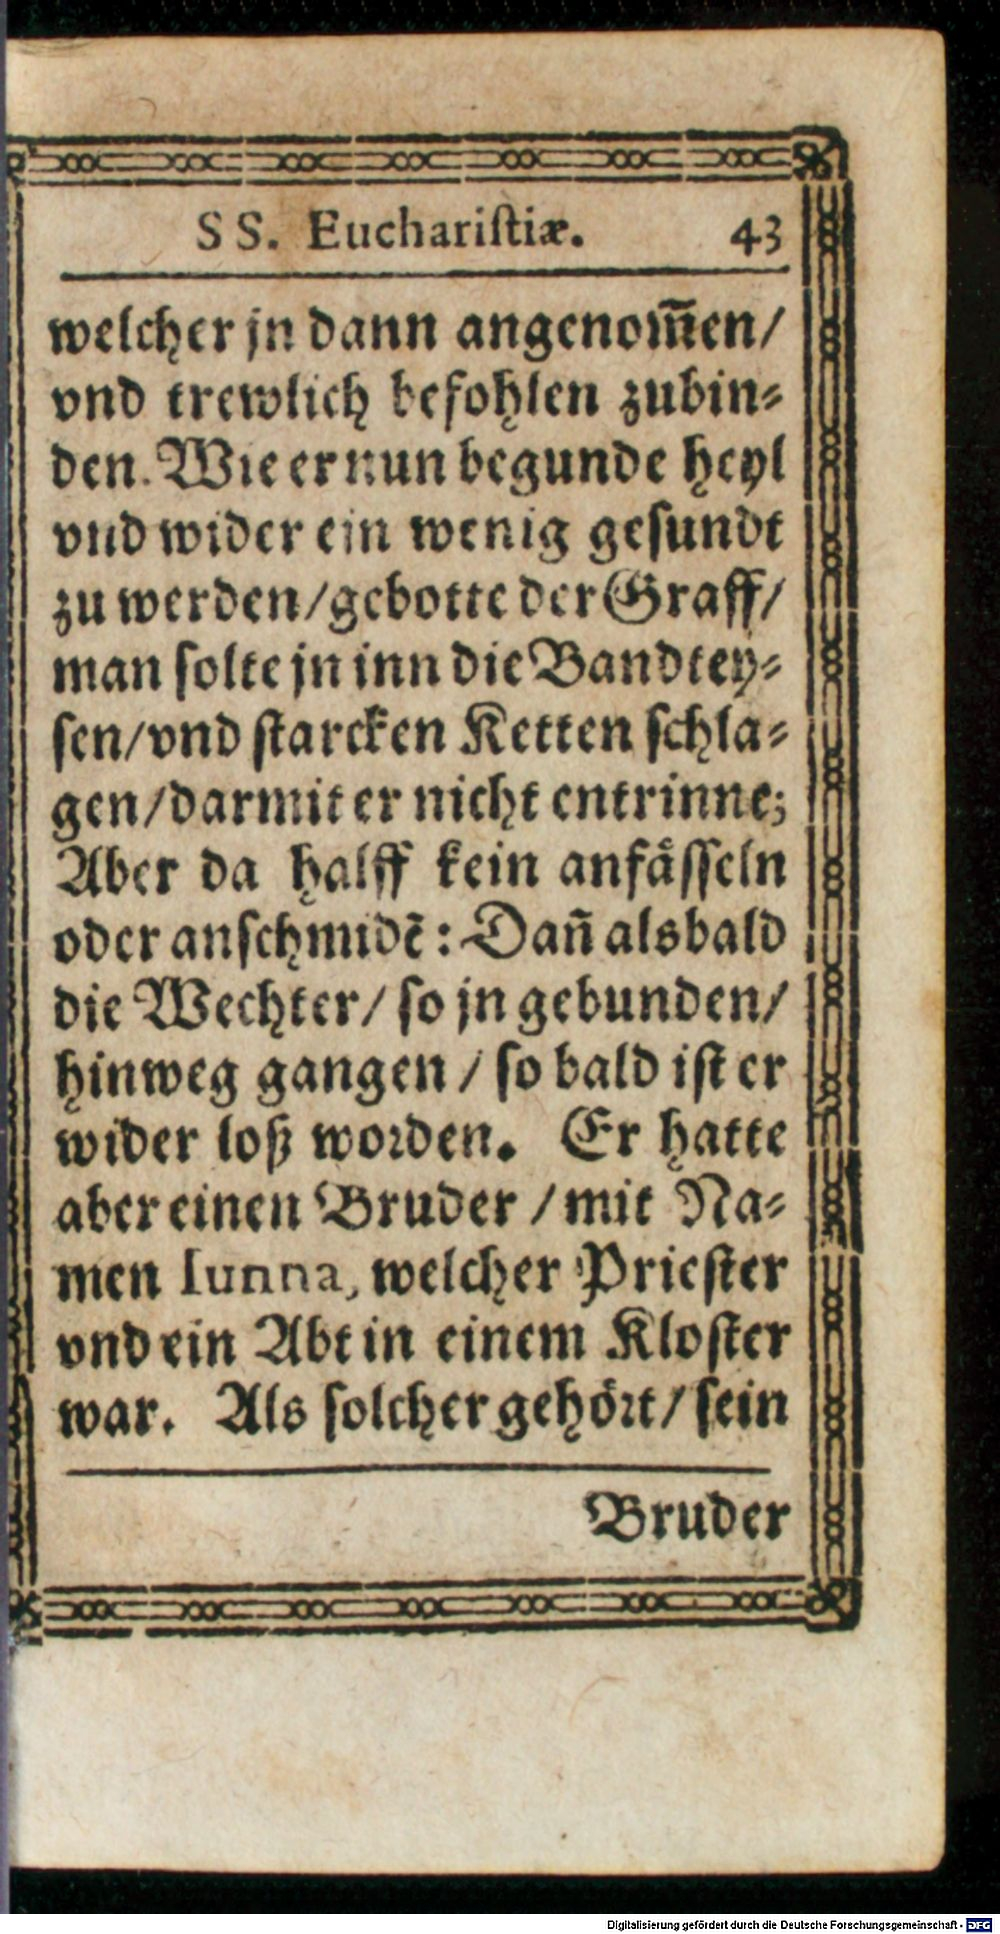 SS. Euchariſtiæ. 43
welcher jn dann angenom̃en/
vnd trewlich befohlen zubin⸗
den. Wie er nun begunde heyl
vnd wider ein wenig geſundt
zu werden/gebotte der Graff/
man ſolte jn inn die Bandtey⸗
ſen/vnd ſtarcken Ketten ſchla⸗
gen/darmit er nicht entrinne;
Aber da halff kein anfäſſeln
oder anſchmidẽ: Dañ alsbald
die Wechter/ ſo jn gebunden/
hinweg gangen / ſo bald iſt er
wider loß worden. Er hatte
aber einen Bruder / mit Na⸗
men Iunna, welcher Prieſter
vnd ein Abt in einem Kloſter
war. Als ſolcher gehört/ ſein
Bruder
Digitalisierung gefördert durch die Deutsche Forschungsgemeinschaft - DFG